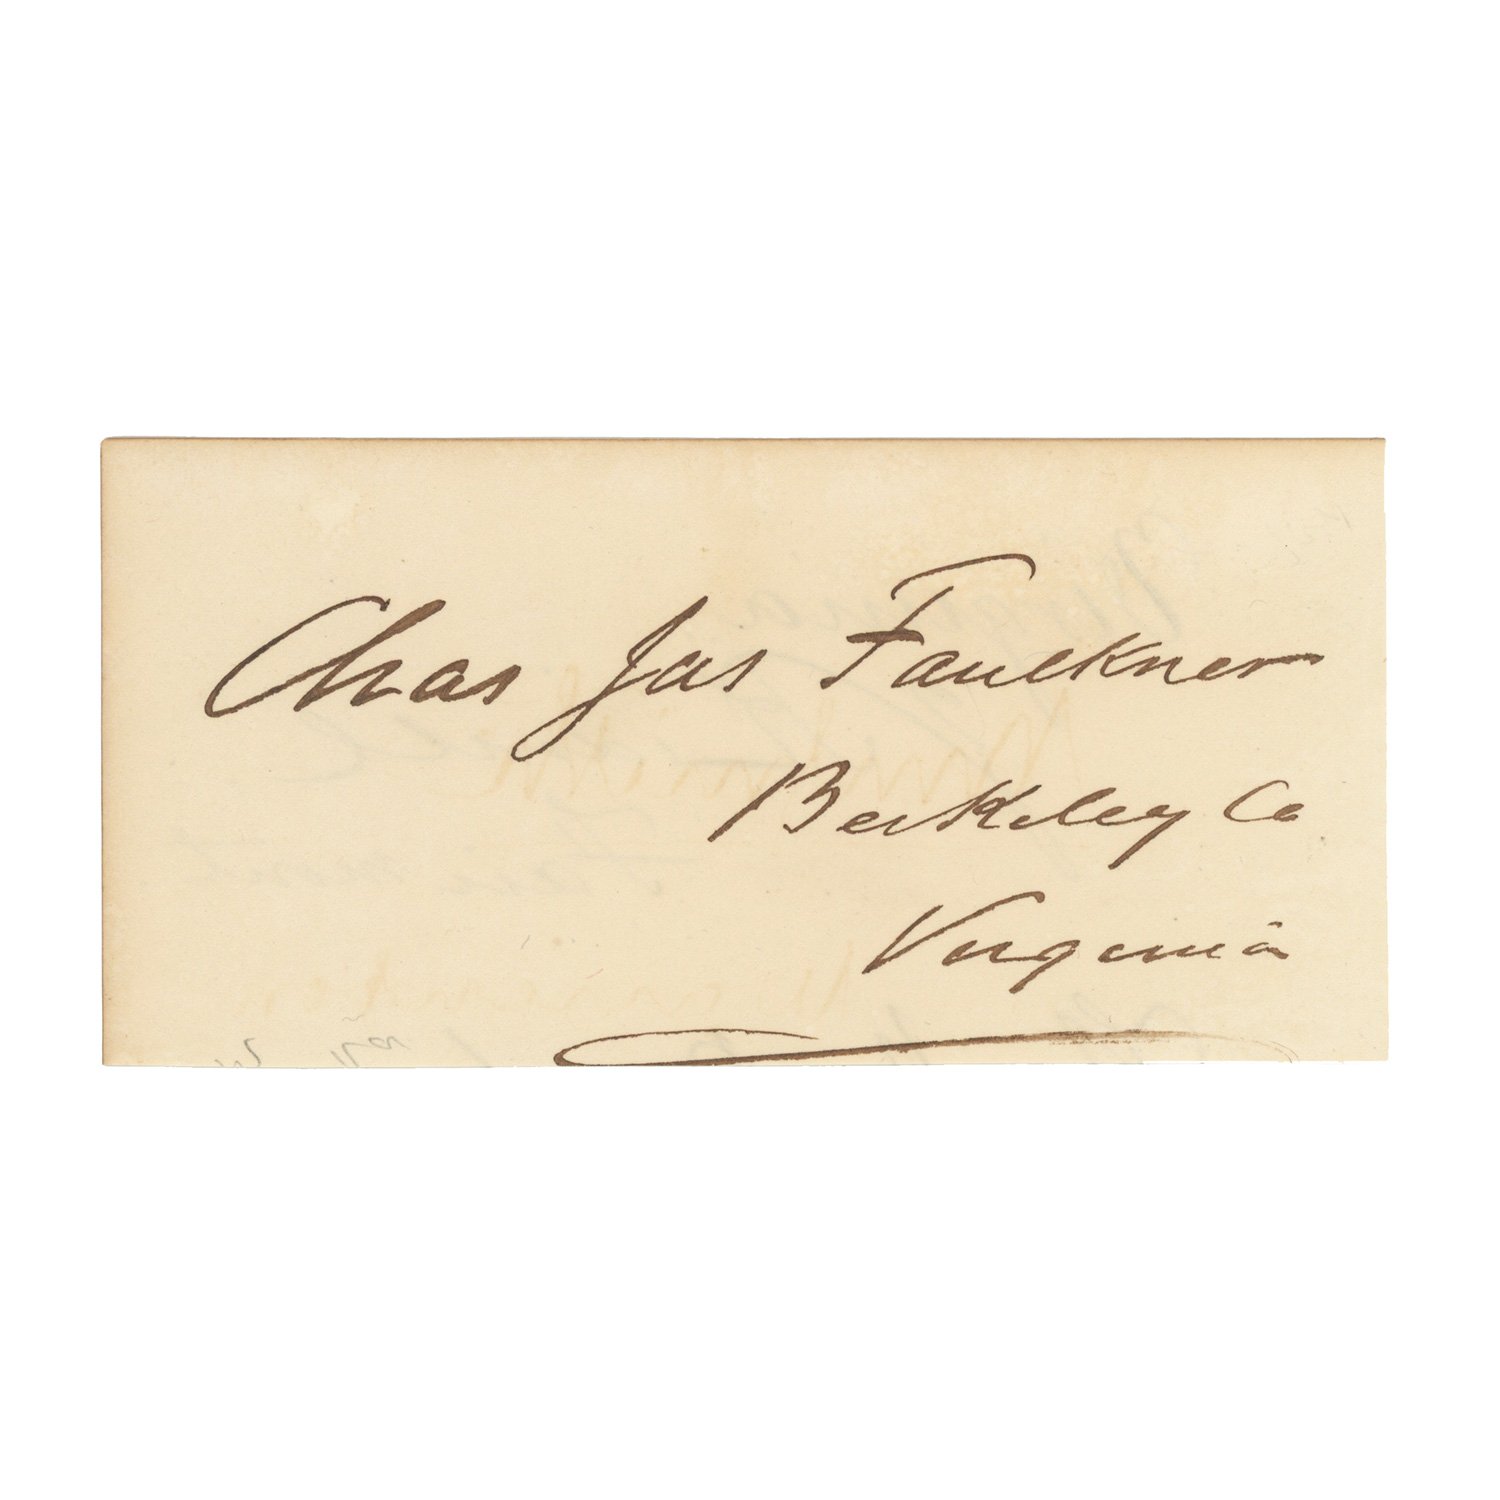 Chas Jas Faulkner
Berkeley Co
Virginia